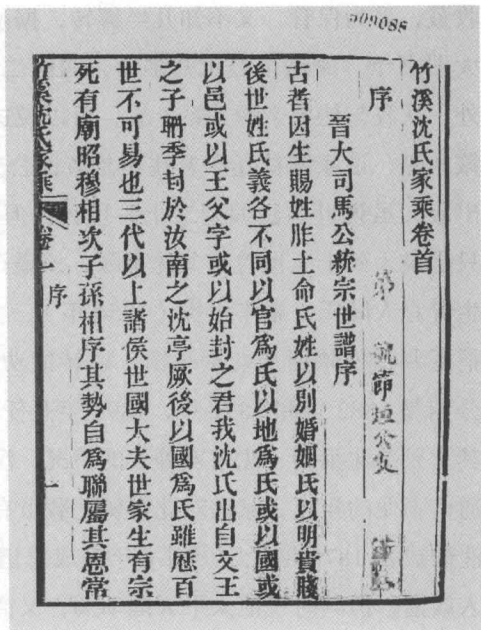 509088
竹溪沈氏家乘卷首
序
第 號節垣公支
晉大司馬公統宗世譜序
古者因生賜姓胙土命氏姓以別婚姻氏以明貴賤
後世姓氏義各不同以官爲氏以地爲氏或以國或
以邑或以王父字或以始封之君我沈氏出自文王
之子聃季封於汝南之沈亭厥後以國爲氏雖歷百
世不可易也三代以上諸侯世國大夫世家生有宗
死有廟昭穆相次子孫相序其勢自爲聯屬其恩常
竹溪沈氏家乘
卷一 序
一